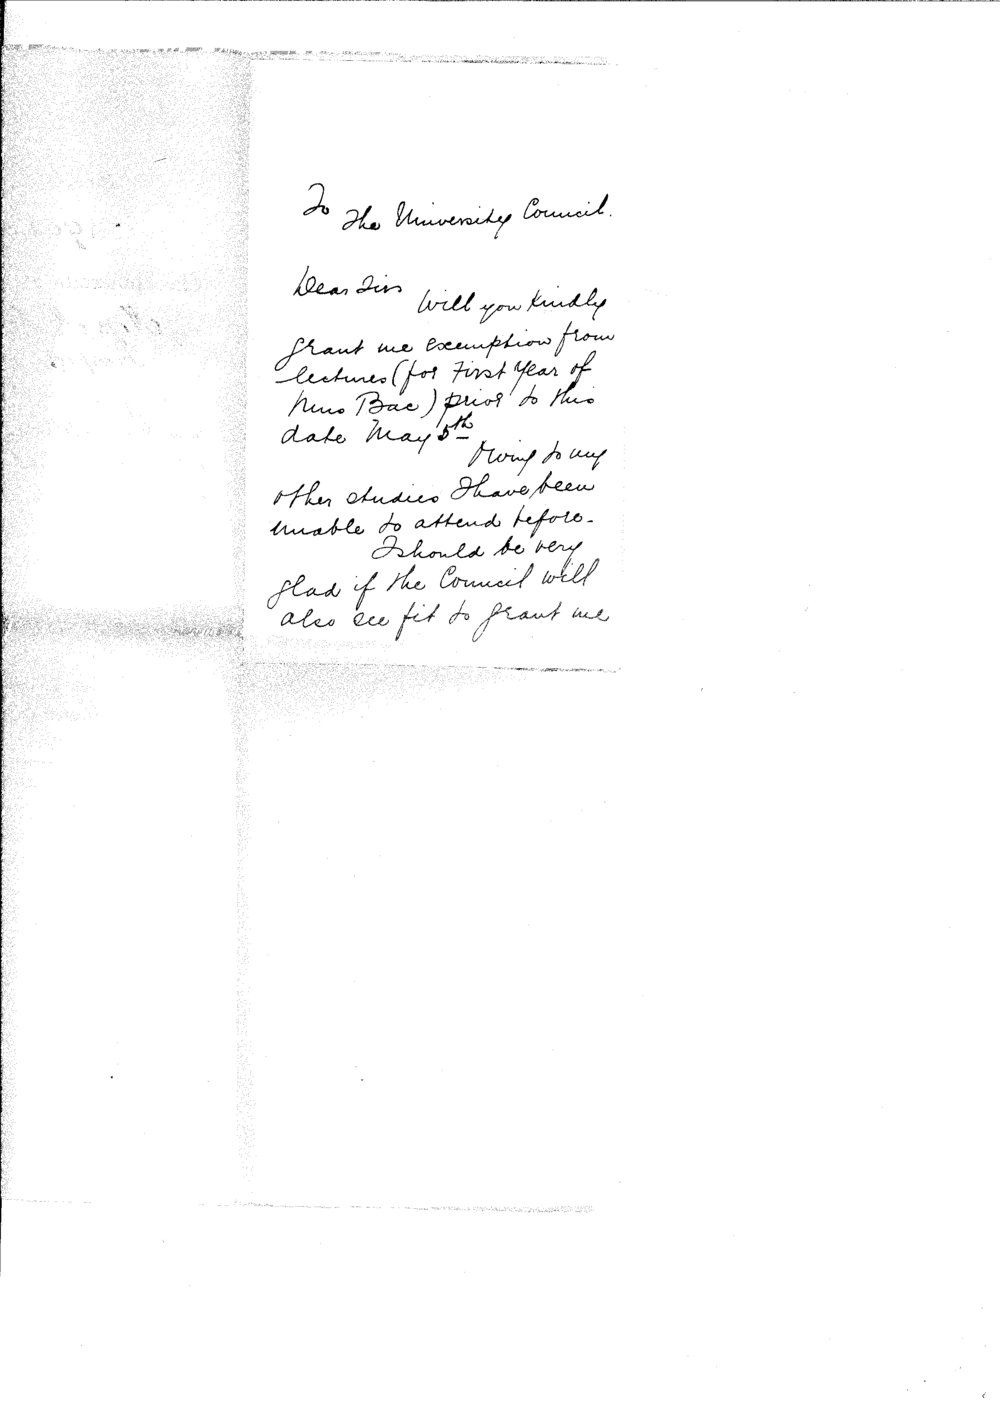 To
The University Council.
Dear Sirs
Will you kindly
grant me exemption from
lectures (for First Year of
Mus Bac) prior to this
date May 5th
Owing to my
other studies I have been
unable to attend before.
I should be very
glad if the Council will
also see fit to grant me